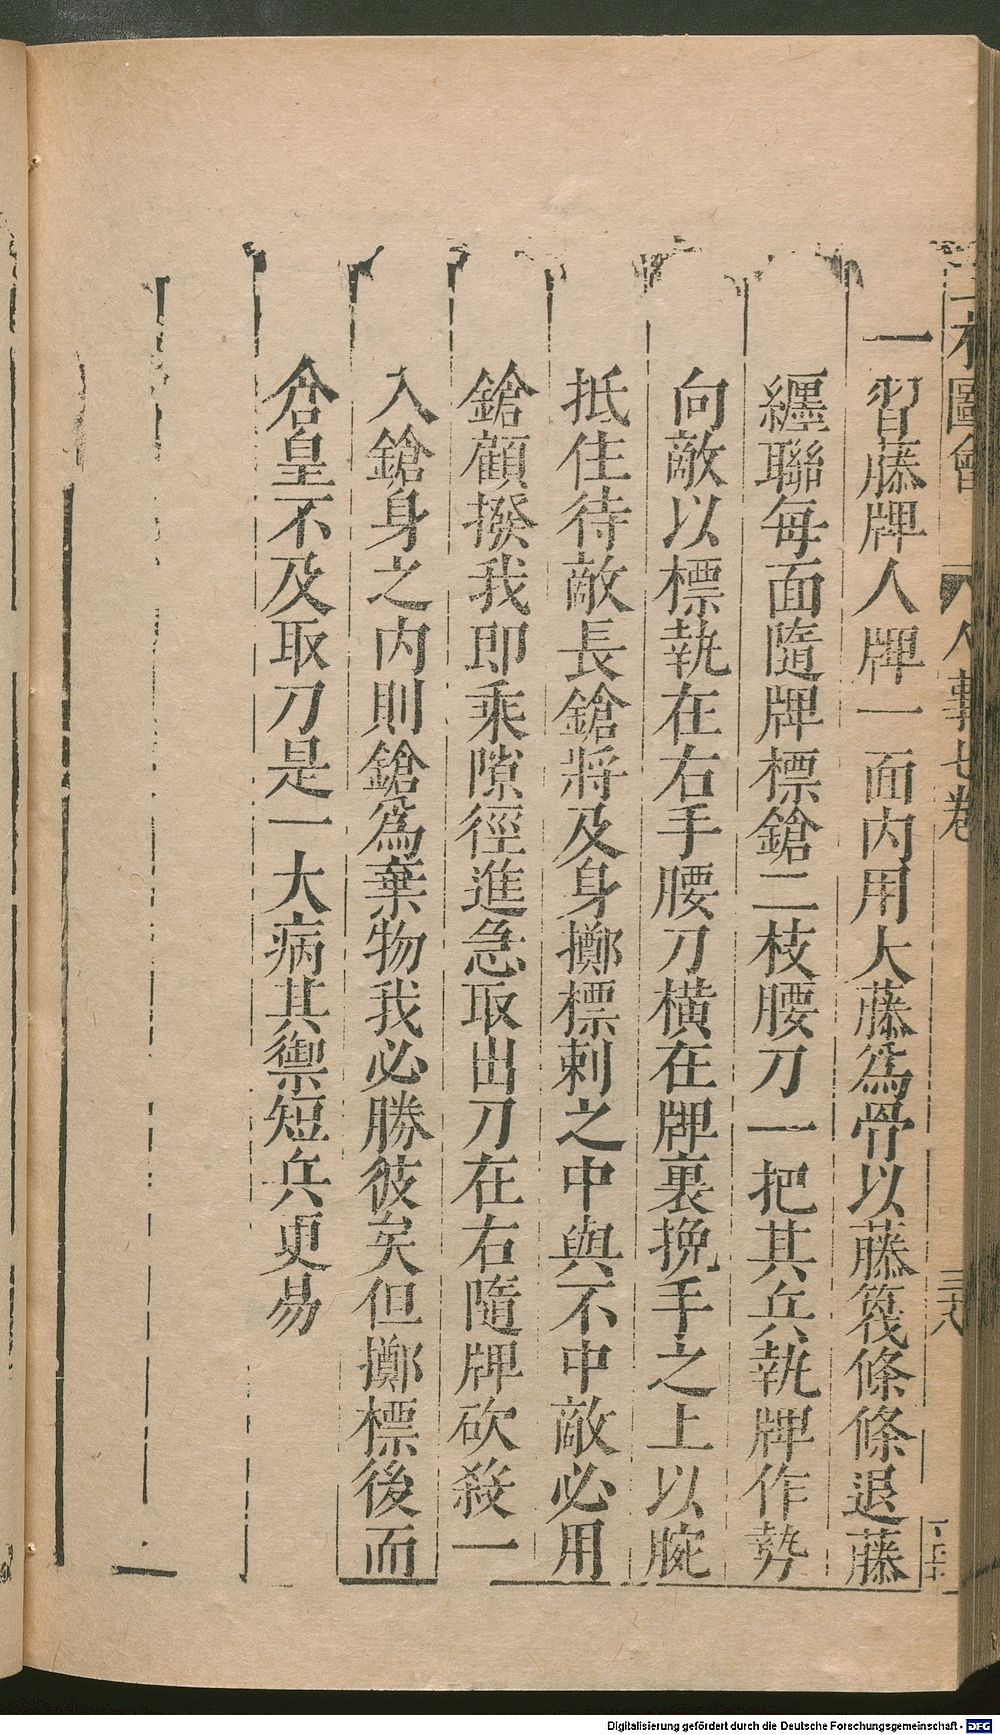 圖會
人事七卷
三八
一習藤牌人牌一面内用大藤爲骨以藤篾條條退藤
纏聯每面隨牌標鎗二枝腰刀一把其兵執牌作勢
向敵以標執在右手腰刀橫在牌裏挽手之上以腕
抵住待敵長鎗將及身擲標刺之中與不中敵必用
鎗顧撥我即乘隙徑進急取出刀在右隨牌砍殺一
入鎗身之内則鎗爲棄物我必勝彼矣但擲標後而
倉皇不及取刀是一大病其禦短兵更易
Digitalisierung gefördert durch die Deutsche Forschungsgemeinschaft - DFG